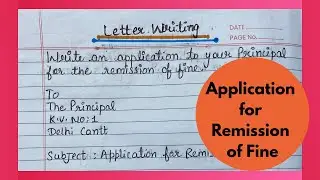 Letter Writing
DATE
PAGE
Write an application to your Principal
for the remission of fine.
To
The Principal
K.V. No: 1
Delhi Cantt
Subject : Application for Remis
Application
for
Remission
of Fine